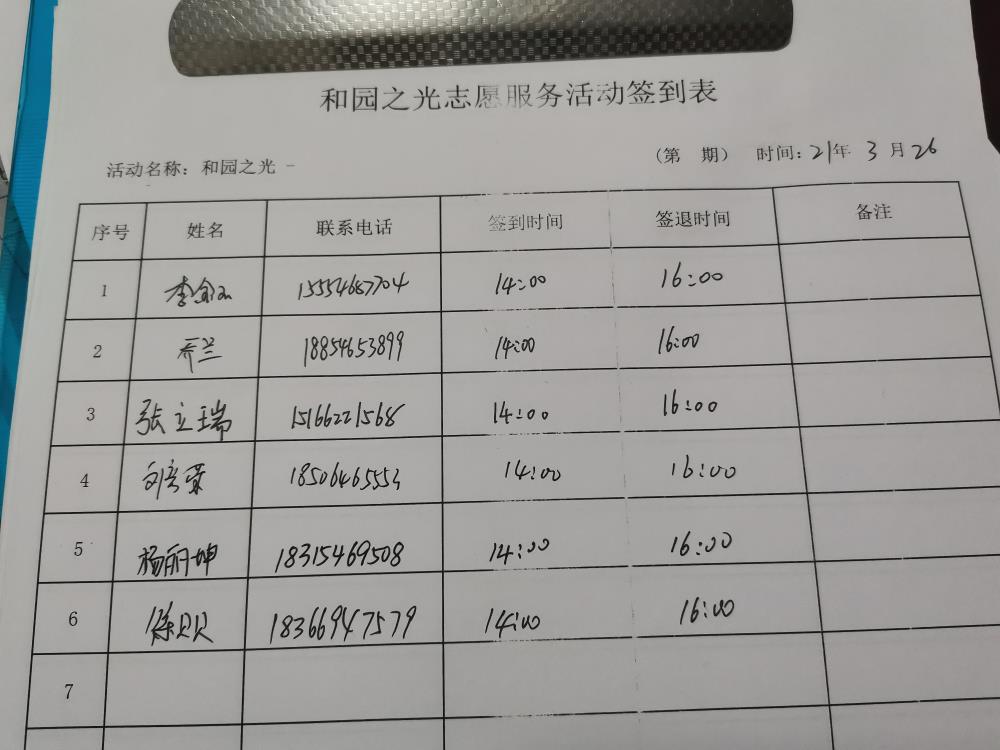 和园之光志愿服务活动签到表
活动名称：和园之光 -
（第 期） 时间：21年 3 月 26
序号 姓名 联系电话 签到时间 签退时间 备注
1 15554687704 14:00 16:00
2 乔兰 18854653899 14:00 16:00
3 张立瑞 15166221568 14:00 16:00
4 18506465553 14:00 16:00
5 杨丽坤 18315469508 14:00 16:00
6 徐贝贝 18366947579 14:00 16:00
7